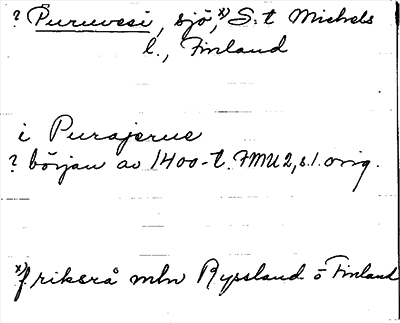 ? Puruvesi, sjö, x) S:t Michels
l., Finland
i Purajerue
? början av 1400-t. FMU 2, s. 1. orig.
x) f riksrå mln Ryssland o Finland